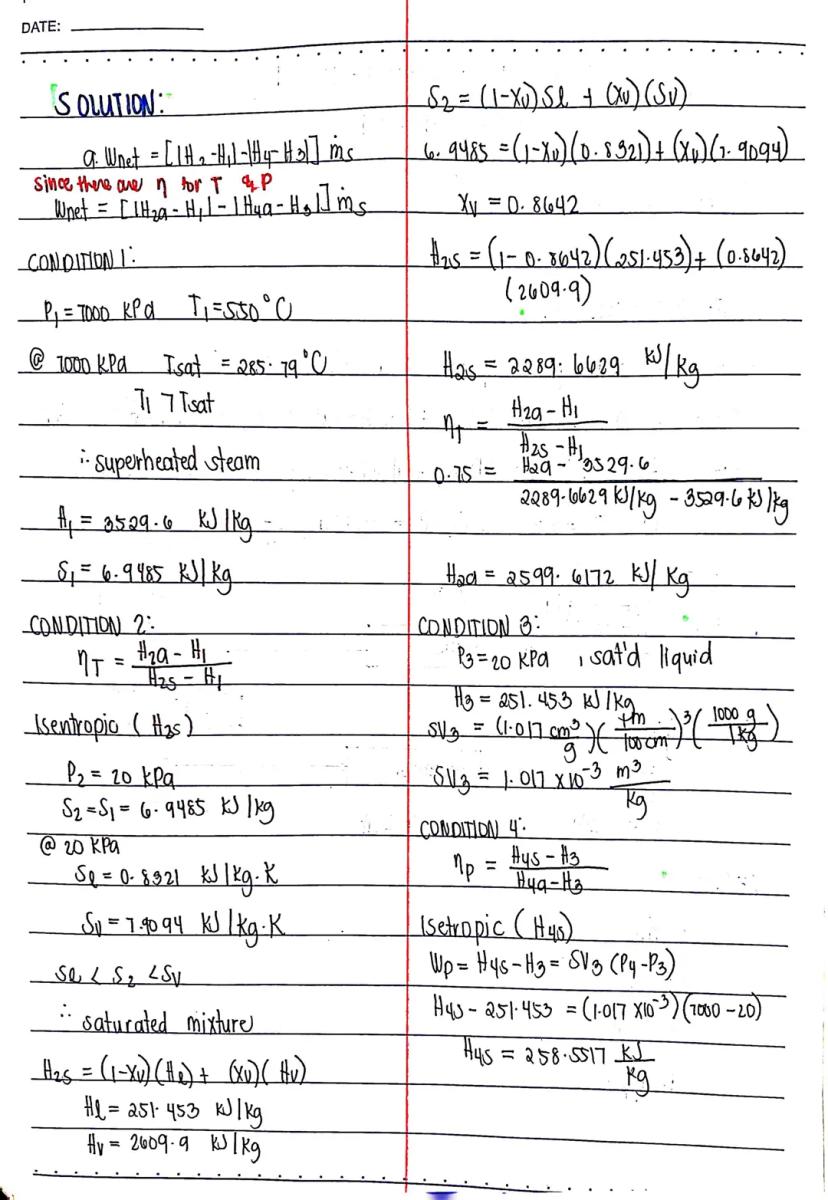 DATE:
SOLUTION:
a. Wnet = [|H2 - H1| - |H4 - H3|] ṁs
since there are η for T & P
Wnet = [|H2a - H1| - |H4a - H3|] ṁs
CONDITION 1:
P1 = 7000 kPa T1 = 550°C
@ 7000 kPa Tsat = 285.79 °C
T1 > Tsat
∴ superheated steam
H1 = 3529.6 kJ/kg
S1 = 6.9485 kJ/kg
CONDITION 2:
ηT = H2a - H1 / H2s - H1
Isentropic (H2s)
P2 = 20 kPa
S2 = S1 = 6.9485 kJ/kg
@ 20 kPa
Sl = 0.8321 kJ/kg·K
Sv = 7.9094 kJ/kg·K
Sl < S2 < Sv
∴ saturated mixture
H2s = (1-Xv)(Hl) + (Xv)(Hv)
Hl = 251.453 kJ/kg
Hv = 2609.9 kJ/kg
S2 = (1-Xv)Sl + (Xv)(Sv)
6.9485 = (1-Xv)(0.8321) + (Xv)(7.9094)
Xv = 0.8642
H2s = (1-0.8642)(251.453) + (0.8642)
(2609.9)
H2s = 2289.6629 kJ/kg
ηT = H2a - H1 / H2s - H1
0.75 = H2a - 3529.6 / 2289.6629 kJ/kg - 3529.6 kJ/kg
H2a = 2599.6172 kJ/kg
CONDITION 3:
P3 = 20 kPa , sat'd liquid
H3 = 251.453 kJ/kg
SV3 = (1.017 cm³/g)(1m/100cm)³(1000 g/1kg)
SV3 = 1.017 x10⁻³ m³/kg
CONDITION 4:
ηp = H4s - H3 / H4a - H3
Isetropic (H4s)
Wp = H4s - H3 = SV3 (P4 - P3)
H4s - 251.453 = (1.017 x10⁻³)(7000 - 20)
H4s = 258.5517 kJ/kg